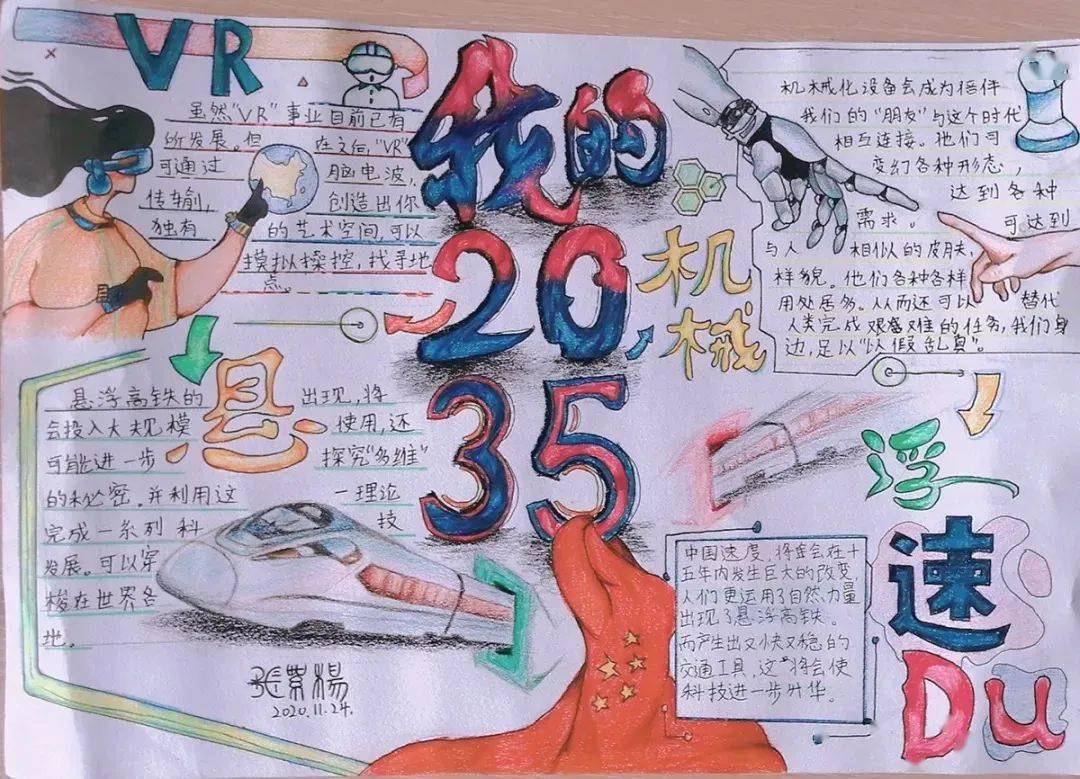 VR
虽然"VR"事业目前已有
所发展。但 在之向,"VR"
可通过 脑电波,
传输, 创造出你
独有 的艺术空间,可以
摸拟操控,找寻地
点。
我的
20
35
机
械
机械化设备会成为倍伴
我们的"朋友"与这个时代
相互连接。他们可
变幻各种形态,
达到各种
需求。 可达到
与人 相似的皮肤,
样貌。他们各种各样
用处居多。从而还可以 替代
人类完成艰难的任务,我们身
边,足以"以假乱真"。
悬
悬浮高铁的 出现,将
会投入大规模 使用,还
可能进一步 探究"多维"
的秘密。并利用这 一理论
完成一系列科 技
发展。可以穿
梭在世界各
地。
张紫杨
2020.11.24.
浮
速
Du
中国速度,将会在十
五年内发生巨大的改变,
人们更运用了自然力量
出现了悬浮高铁。
而产生出又快又稳的
交通工具,这将会使
科技进一步升华。